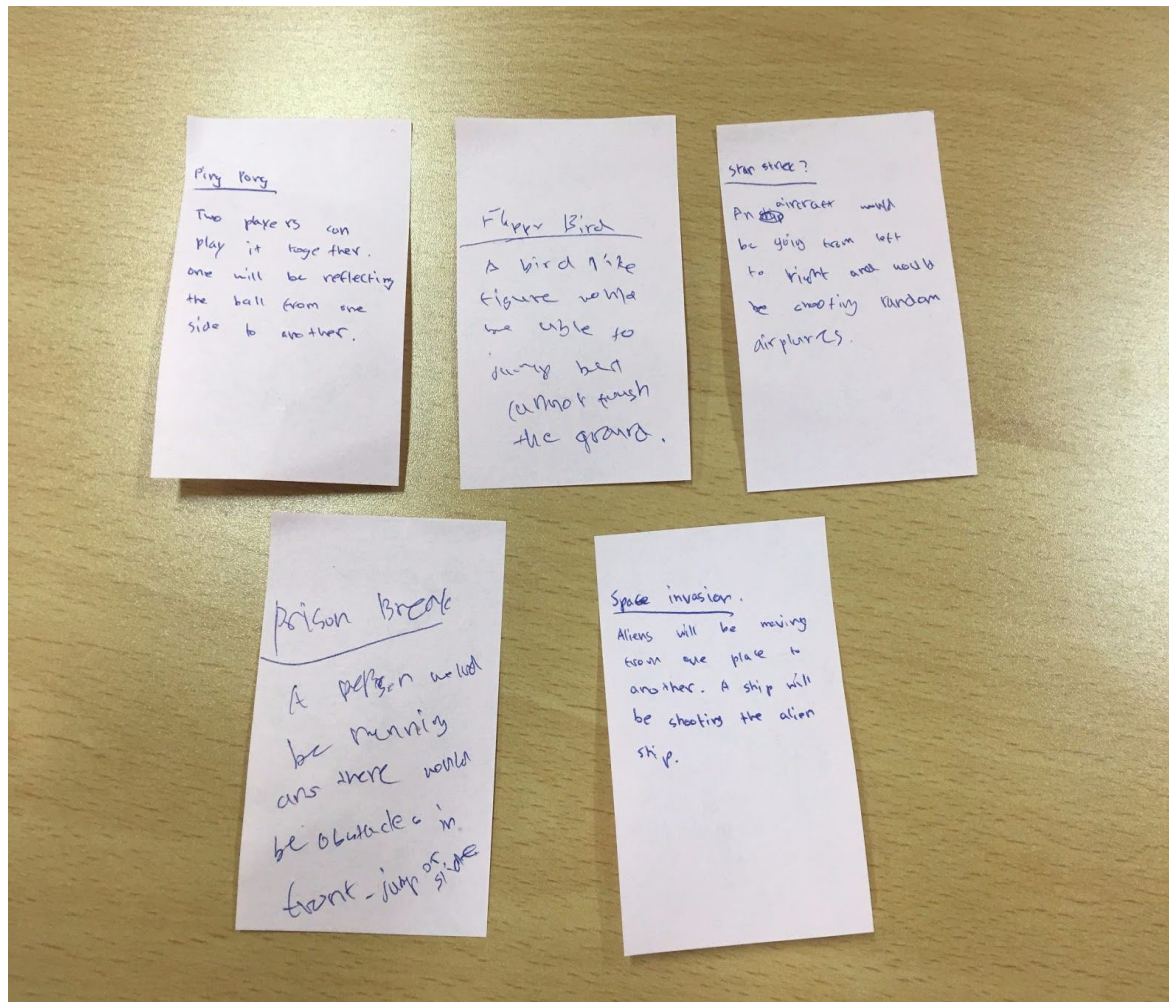 Ping Pong
Two players can
play it together.
one will be reflecting
the ball from one
side to another.
Flappy Bird
A bird like
figure would
be able to
jump but
cannot touch
the ground.
Star strek?
An aircraft would
be going from left
to right and would
be shooting random
airplanes.
Prison Break
A person would
be running
and there would
be obstacles in
front - jump or slide
Space invasion.
Aliens will be moving
from one place to
another. A ship will
be shooting the alien
ship.